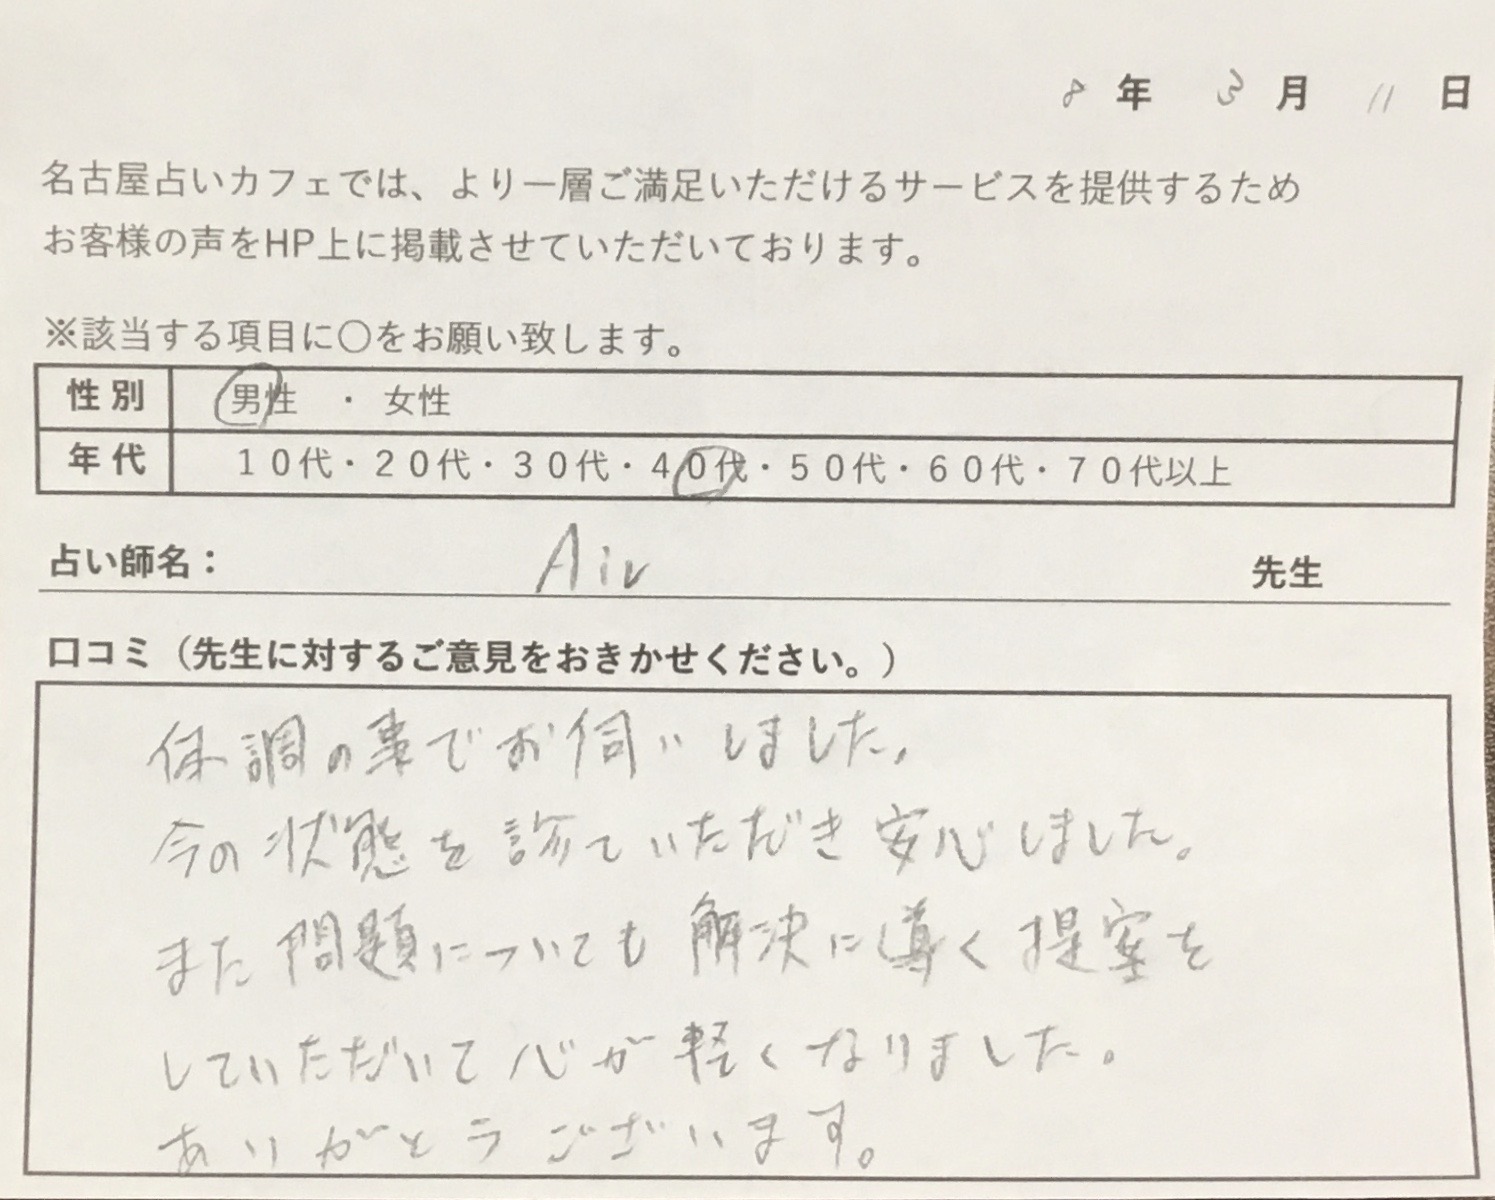 8 年 3 月 11 日
名古屋占いカフェでは、より一層ご満足いただけるサービスを提供するため
お客様の声をHP上に掲載させていただいております。
※該当する項目に〇をお願い致します。
性別 男性 ・ 女性
年代 10代・20代・30代・40代・50代・60代・70代以上
占い師名： Air 先生
口コミ（先生に対するご意見をおきかせください。）
体調の事でお伺いしました。
今の状態を診ていただき安心しました。
また問題についても解決に導く提案を
していただいて心が軽くなりました。
ありがとうございます。